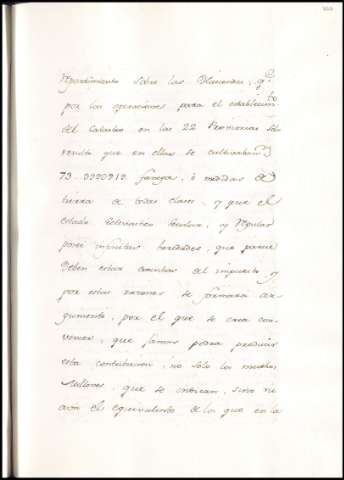 repartimiento sobre las Haciendas, q.e
por las operaciones para el establecim.to
del Catastro en las 22 Provincias solo
resulta que en ellas se cultivaban
fanegas, ó medidas de
tierra de todas clases, y que el
estado Eclesiastico Secular, y Regular
poseé infinitas heredades, que parece
deben estar esemtas del impuesto, y
por estas razones se formará ar-
gumento, por el que se crea con-
vencer, que jamas podrá producir
esta contribucion, no solo los muchos
millones, que se indican, sino ni
aun el equivalente de lo que en la